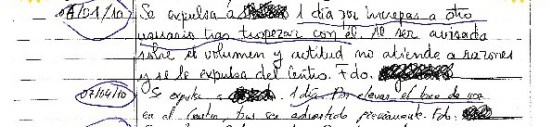 /01/10 Se expulsa a 1 día por increpar a otro
usuario tras tropezar con él. Al ser avisado
sobre el volumen y actitud no atiende a razones
y se le expulsa del Centro. Fdo.
07/04/10 Se expulsa a 1 día. Por elevar el tono de voz
en el Centro tras ser advertido previamente. Fdo.